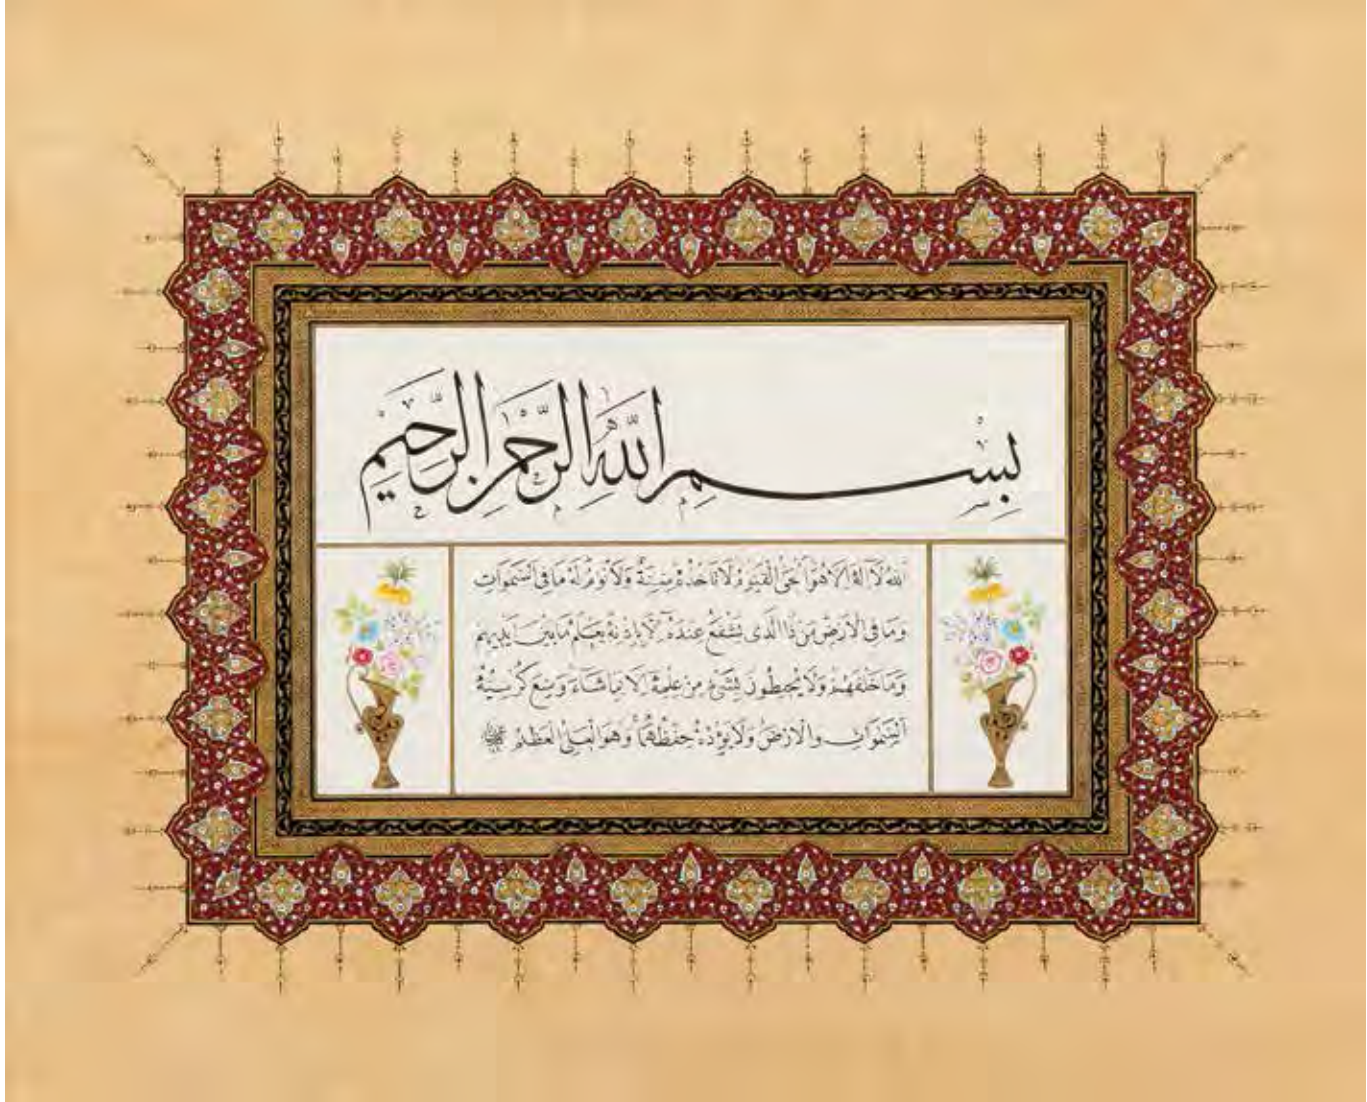 بِسْمِ اللّٰهِ الرَّحْمٰنِ الرَّحِيمِ
اَللّٰهُ لَا اِلٰهَ اِلَّا هُوَ اَلْحَىُّ الْقَيُّومُ لَا تَأْخُذُهُ سِنَةٌ وَلَا نَوْمٌ لَهُ مَا فِى السَّمٰوَاتِ
وَمَا فِى الْاَرْضِ مَنْ ذَا الَّذِى يَشْفَعُ عِنْدَهُ اِلَّا بِاِذْنِهِ يَعْلَمُ مَا بَيْنَ اَيْدِيهِمْ
وَمَا خَلْفَهُمْ وَلَا يُحِيطُونَ بِشَىْءٍ مِنْ عِلْمِهِ اِلَّا بِمَا شَاءَ وَسِعَ كُرْسِيُّهُ
السَّمٰوَاتِ وَالْاَرْضَ وَلَا يَؤُدُهُ حِفْظُهُمَا وَهُوَ الْعَلِىُّ الْعَظِيمُ